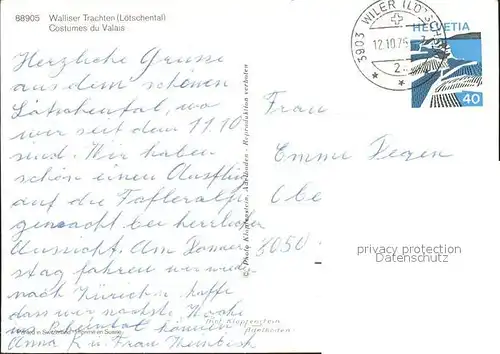 88905 Walliser Trachten (Lötschental)
Costumes du Valais
3903 WILER (LÖTSCHEN)
12.10.75
HELVETIA
40
Herzliche Grüsse
aus dem schönen
Lötschental, wo
wir seit dem 11.10
sind. Wir haben
schön einen Ausflug
auf die Fafleralp
gemacht bei herrlicher
Aussicht. Am Donners
tag fahren wir wieder
nach Zürich. Ich hoffe
dass wir nächste Woche
können
Anna K. u. Frau
Frau
Emme Fegen
8050
© Photo Klopfenstein, Adelboden - Reproduktion verboten
Photo Klopfenstein
Adelboden
Printed in Switzerland - Imprimé en Suisse
privacy protection
Datenschutz